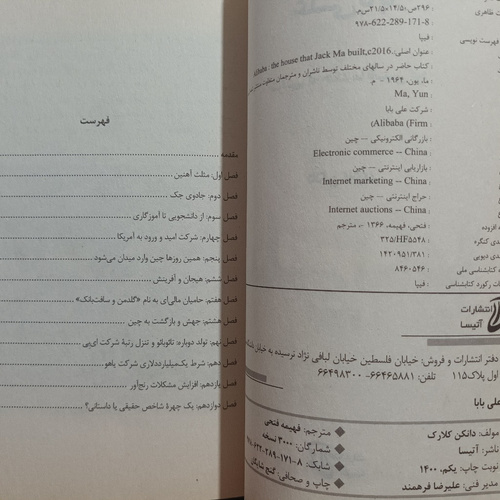 ۲۹۶ص؛ ۱۴/۵×۲۱/۵س‌م.
ت ظاهری
۹۷۸-۶۲۲-۲۸۹-۱۷۱-۸
فیپا
فهرست نویسی
عنوان اصلی: Alibaba : the house that Jack Ma built,c2016.
کتاب حاضر در سالهای مختلف توسط ناشران و مترجمان متفاوت
ما، یون، ۱۹۶۴ - م.
Ma, Yun
شرکت علی بابا
Alibaba (Firm)
بازرگانی الکترونیکی -- چین
Electronic commerce -- China
بازاریابی اینترنتی -- چین
Internet marketing -- China
حراج اینترنتی -- چین
Internet auctions -- China
فتحی، فهیمه، ۱۳۶۶ -، مترجم
ه افزوده
۳۲۵/HF۵۵۴۸
دی کنگره
۳۸۱/۱۴۲۰۹۵۱
دی دیویی
۸۴۶۰۵۴۶
کتابشناسی ملی
فیپا
ت رکورد کتابشناسی
انتشارات
آتیسا
دفتر انتشارات و فروش: خیابان فلسطین خیابان لبافی نژاد نرسیده به خیابان
اول پلاک۱۱۵ تلفن: ۶۶۴۶۵۸۸۱- ۶۶۴۹۸۳۰۰
علی بابا
مولف: دانکن کلارک
مترجم: فهیمه فتحی
ناشر: آتیسا
شمارگان: ۳۰۰۰ نسخه
نوبت چاپ: یکم، ۱۴۰۰
شابک: ۸-۱۷۱-۲۸۹-۶۲۲-۹۷۸
مدیر فنی: علیرضا فرهمند
چاپ و صحافی: گنج شایگان
فهرست
مقدمه
فصل اول: مثلث آهنین
فصل دوم: جادوی جک
فصل سوم: از دانشجویی تا آموزگاری
فصل چهارم: شرکت امید و ورود به آمریکا
فصل پنجم: همین روزها چین وارد میدان می‌شود
فصل ششم: هیجان و آفرینش
فصل هفتم: حامیان مالی‌ای به نام «گلدمن و سافت‌بانک»
فصل هشتم: جهش و بازگشت به چین
فصل نهم: تولد دوباره: تائوبائو و تنزل رتبۀ شرکت ای‌بی
فصل دهم: شرط یک‌میلیارددلاری شرکت یاهو
فصل یازدهم: افزایش مشکلات رنج‌آور
فصل دوازدهم: یک چهرۀ شاخص حقیقی یا داستانی؟